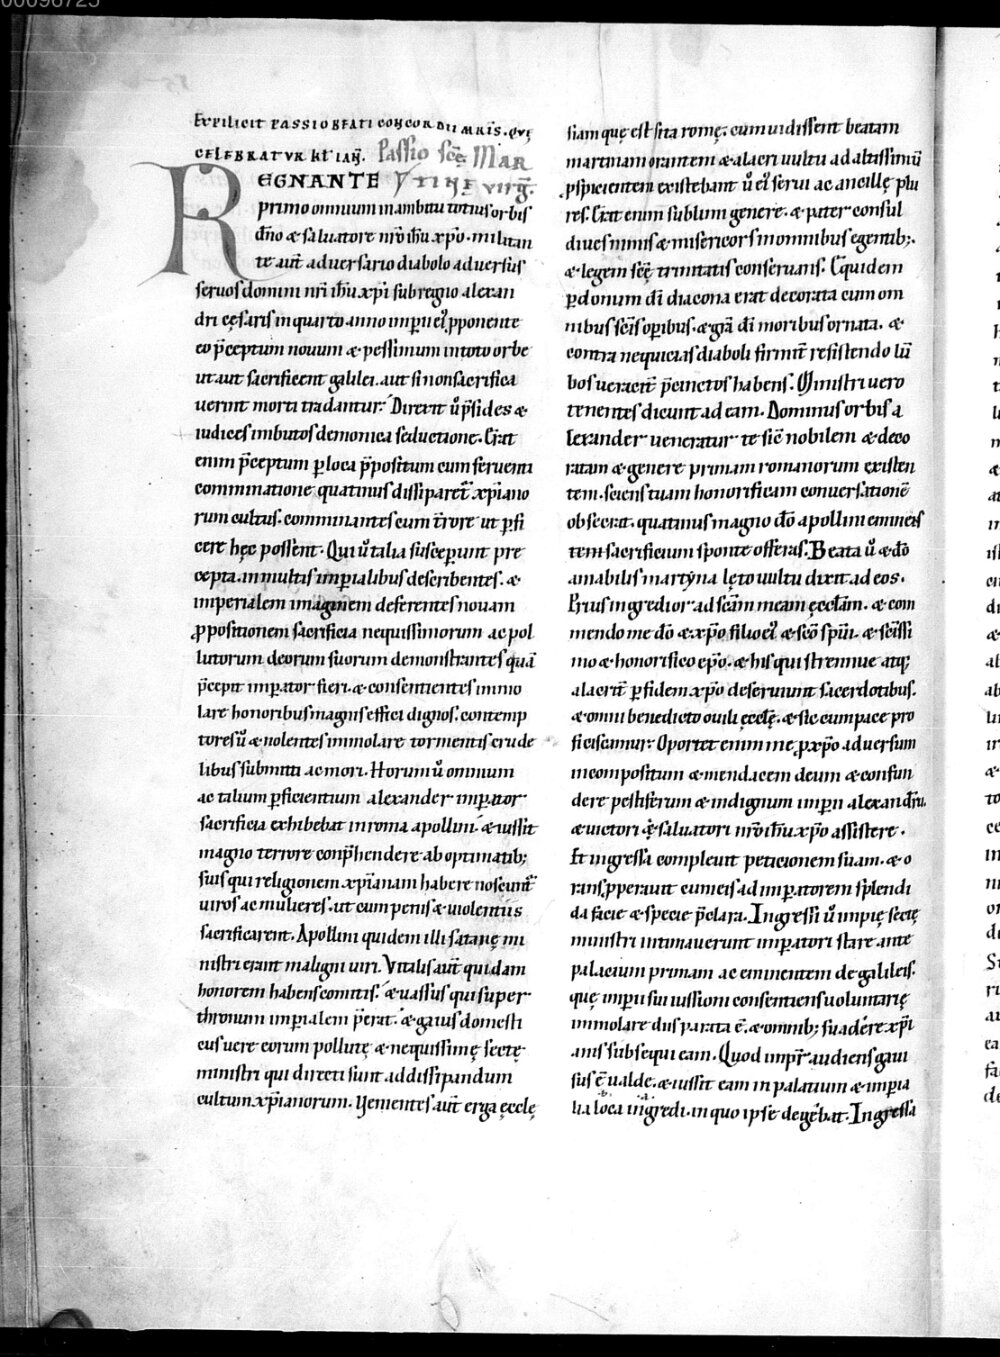 00096725
EXPLICIT PASSIO BEATI CONCORDII MRIS. QVĘ
CELEBRATVR KL IAN̄. Passio sc̄ę MAR
REGNANTE TINĘ virḡ.
primo omnium in ambitu totius orbis
dn̄o & saluatore nr̄o ih̄u xp̄o. militan
te aut̄ aduersario diabolo aduersus
seruos domini nr̄i ih̄u xp̄i sub regno alexan
dri cęsaris in quarto anno imperii ei' p̱ponente
eo p̄ceptum nouum & pessimum in toto orbe
ut aut sacrificent galilei. aut si non sacrifica
uerint morti tradantur. Direxit ū p̄sides &
iudices imbutos demonica seductione. Erat
enim p̄ceptum ꝑ loca p̄positum cum feruenti
comminatione quatinus dissiparet̄ xp̄iano
rum cultus. comminantes cum t̄rore ut ꝑfi
cere hęc possent. Qui ū talia susceꝑunt pre
cepta. in multis imꝑialibus describentes. &
imperialem imaginem deferentes nouam
p̱positionem sacrificia nequissimorum ac pol
lutorum deorum suorum demonstrantes quā
p̄cepit imꝑator fieri. & consentientes immo
lare honoribus magnis effici dignos. contemp
tores ū & nolentes immolare tormentis crude
libus submitti ac mori. Horum ū omnium
ac talium ꝑficientium alexander imꝑator
sacrificia exhibebat in roma apollini. & iussit
magno terrore conp̄hendere ab optimatib;
suis qui religionem xp̄ianam habere noscunt̄
uiros ac mulieres. ut cum penis & uiolentiis
sacrificarent. Apollini quidem illi satanę mi
nistri erant maligni uiri. Vitalis aut̄ quidam
honorem habens comitis. & uassus qui super
thronum imꝑialem p̄erat. & gaius domesti
cus uere eorum pollutę & nequissimę sectę
ministri qui directi sunt ad dissipandum
cultum xp̄ianorum. Uenientes aut̄ erga ęcclę
siam quę est sita romę. cum uidissent beatam
martinam orantem & alacri uultu ad altissimū
ꝑspicientem existebant ū ei' serui ac ancillę plu
res. Erat enim sublimi genere. & pater consul
diues nimis & misericors in omnibus egentib;.
& legem sc̄ę trinitatis conseruans. Equidem
ꝑ donum dī diacona erat decorata cum om
nibus sc̄is oꝑibus. & gr̄a dī moribus ornata. &
contra nequicias diaboli firmit̄ resistendo lū
bos ueracit̄ p̄cinctos habens. Ministri uero
tenentes dicunt ad eam. Dominus orbis a
lexander ueneratur te sic̄ nobilem & deco
ratam & genere primam romanorum existen
tem. sciens tuam honorificam conuersationē
obsecrat. quatinus magno dō apollini eminens
tem sacrificium sponte offeras. Beata ū & dō
amabilis martyna lęto uultu dixit ad eos.
Prius ingredior ad sc̄am meam ęccl̄am. & com
mendo me dō & xp̄o filio ei' & sc̄o sp̄ui. & sc̄issi
mo & honorifico ep̄o. & his qui strennue atq;
alacrit̄ ꝑ fidem xp̄o deseruiunt sacerdotibus.
& omni benedicto ouili ęcclę. & sic cum pace pro
ficiscamur. Oportet enim me p̱ xp̄o aduersum
incompositum & mendacem deum & confun
dere pestiferum & indignum imperii alexandrū.
& uictori & saluatori nr̄o ih̄u xp̄o assistere.
Et ingressa compleuit peticionem suam. & o
rans p̱perauit cum eis ad imꝑatorem splendi
da facie & specie p̄clara. Ingressi ū impię sectę
ministri intimauerunt imꝑatori stare ante
palacium primam ac eminentem de galileis.
quę imperii sui iussioni consentiens uoluntarię
immolare diis parata ē. & omnib; suadere xp̄i
anis subsequi eam. Quod imp̄r audiens gaui
sus ē ualde. & iussit eam in palatium & imꝑia
lia loca ingredi. in quo ipse degebat. Ingressa